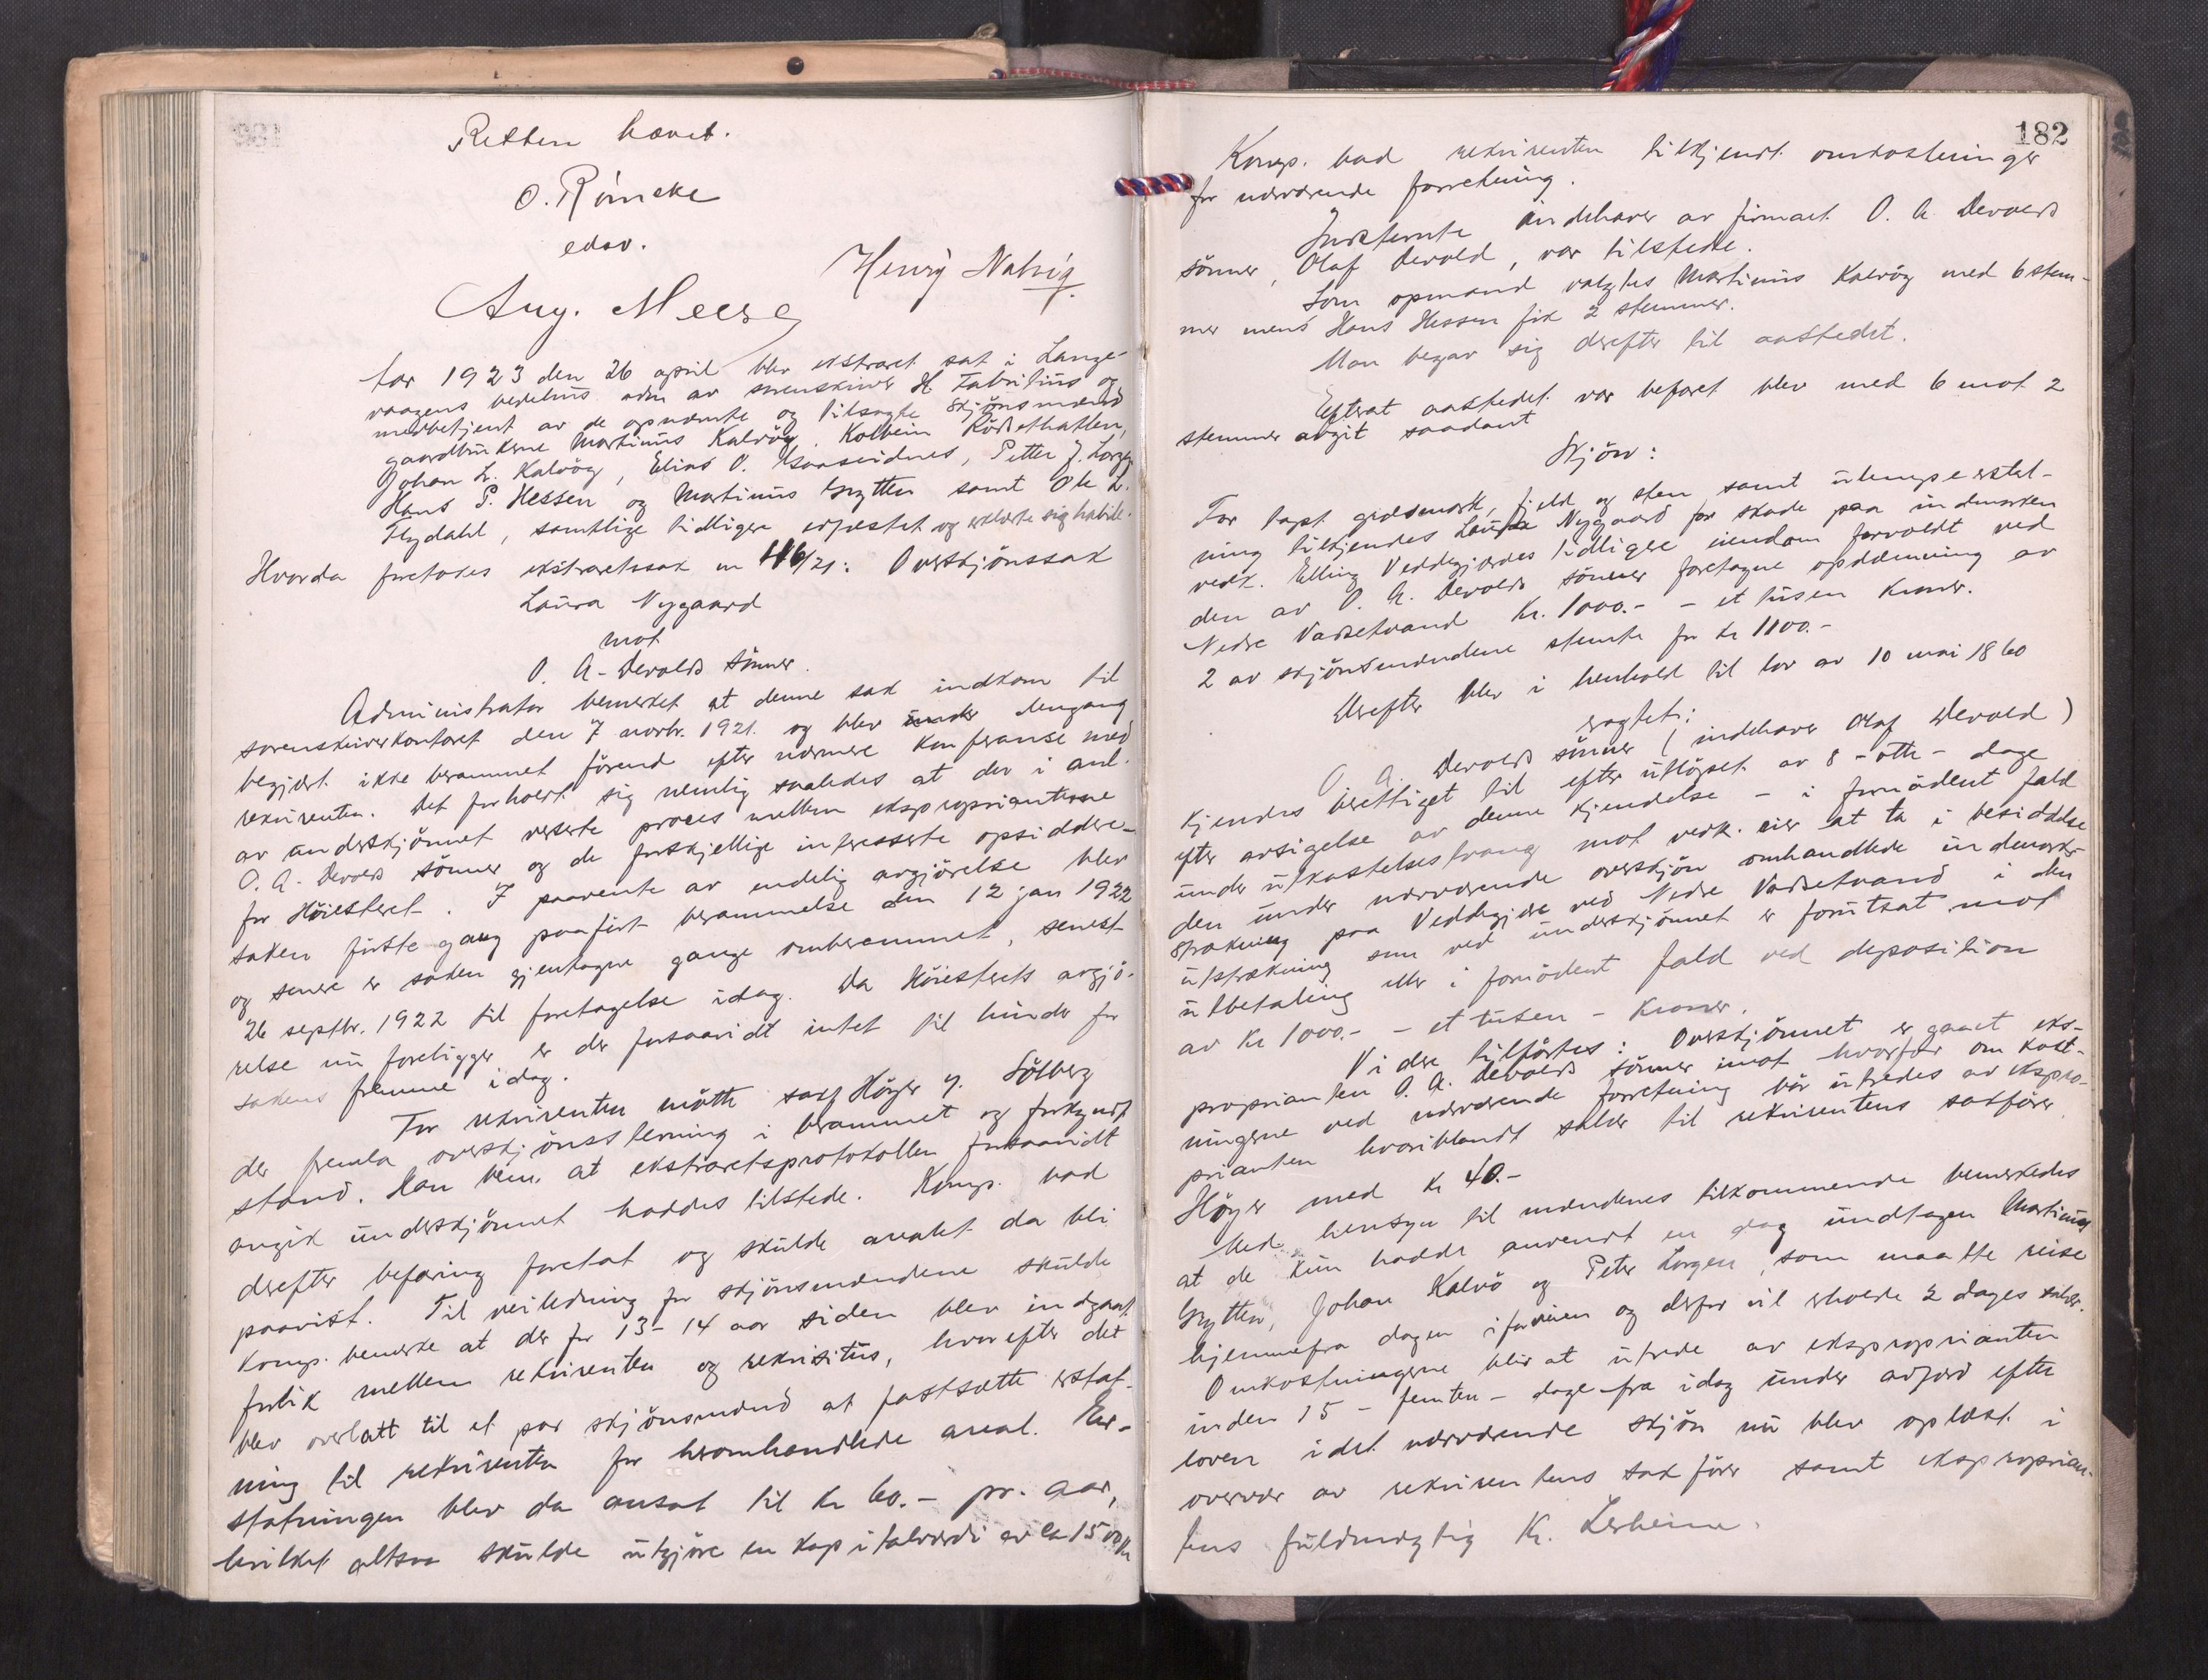 Retten hævet.
O. Röncke
edsv.
Henrÿ Natvig
Aug. Meese
Aar 1923 den 26 april blev ekstraret sat i Lange-
vaagens bedehus adm av sorenskriver H Fabritius og
medbetjent av de opnævnte og tilsagte skjönsmænd
gaardbrukerne Martinus Kalvög, Kolbein
Johan L. Kalvög, Elias O. Petter J. Lorgen
Hans P. Hessen og Martinus Grytten samt Ole L.
Flydahl, samtlige tidligere edfæstet og erklærte sig habile.
Hvorda foretokes ekstraretssak nr 116/21: Overskjönssak
Laura Nygaard
mot
O. A. Devolds sönner.
Administrator bemerket at denne sak indkom til
sorenskriverkontoret den 7 novbr. 1921. og blev under dengang
begjært ikke berammet förend efter nærmere konferanse med
rekvirenten. Det forholdt sig nemlig saaledes at der i anl.
av underskjönnet verserte proces mellem eksproprianterne
O. A. Devolds sönner og de forskjellige interesserte opsiddere
for Höiesteret. I paavente av endelig avgjörelse blev
saken förste gang paaført berammelse den 12 jan 1922
og senere er saken gjentagne gange omberammet, senest
26 septbr. 1922 til foretagelse idag. Da Höiesterets avgjö-
relse nu foreligger er der forsaavidt intet til hinder for
sakens fremme idag.
For rekvirenten mötte sakf Höyer y. Solberg
der fremla overskjönsstevning i berammet og forkyndt
stand. Han bem. at ekstraretsprotokollen forsaavidt
angik underskjönnet haddes tilstede. Komp. bad
derefter befaring foretat og skulde arealet da bli
paavist. Til veiledning for skjönsmændene skulde
komp. bemerke at der for 13-14 aar siden blev indgaat
forlik mellem rekvirenten og rekvisitus, hvorefter det
blev overlatt til et par skjönsmænd at fastsætte erstat-
ning til rekvirenten for heromhandlede areal. Er-
statningen blev da ansat til kr 60.- pr. aar,
hvilket altsaa skulde utgjöre en kapitalværdi av ca 1500 kr
182
Komp. bad rekvirenten tilkjendt omkostninger
for nærværende forretning.
Indstevnte indehaver av firmaet O. A. Devolds
sönner, Olaf Devold, var tilstede.
Som opmand valgtes Martinus Kalvög med 6 stem-
mer mens Hans Hessen fik 2 stemmer.
Man begav sig derefter til aastedet.
Efterat aastedet var befaret blev med 6 mot 2
stemmer avgit saadant
Skjön:
For tapt græsmark, fjeld og sten samt ulempeerstat-
ning tilkjendes Laura Nygaard for skade paa indmarken
vedk. Elling Veddegjerdes tidligere eiendom forvoldt ved
den av O. A. Devolds sönner foretagne opdæmning av
Nedre Vadsetvand kr. 1000.- - et tusen kroner.
2 av skjönsmændene stemte for kr 1100.-
Derefter blev i henhold til lov av 10 mai 1860
eragtet:
O. A. Devolds sönner (indehaver Olaf Devold)
kjendes berettiget til efter utlöpet av 8 - otte - dage
efter avsigelse av denne kjendelse - i fornödent fald
under utkastelsestvang mot vedk. eier at ta i besiddelse
den under nærværende overskjön omhandlede indmarks-
strækning paa Veddegjerde ved Nedre Vadsetvand i den
utstrækning som ved underskjönnet er forutsat mot
utbetaling eller i fornödent fald ved deposition
av kr 1000.- - et tusen - kroner.
Videre tilførtes: Overskjönnet er gaaet eks-
proprianten O. A. Devolds sönner imot hvorfor om kost-
ningerne ved nærværende forretning bör utredes av ekspro-
prianten hvoriblandt salær til rekvirentens sakförer
Höyer med kr 40.-
Med hensyn til mændenes tilkommende bemerkedes
at de kun hadde anvendt en dag undtagen Martinus
Grytten, Johan Kalvö og Peter Lorgen, som maatte reise
hjemmefra dagen iforveien og derfor vil erholde 2 dages salær.
Omkostningerne blir at utrede av eksproprianten
inden 15 - femten - dage fra idag under adfærd efter
loven idet nærværende skjön nu blev oplæst i
overvær av rekvirentens sakförer samt eksproprian-
tens fuldmægtig K. Lerheim.